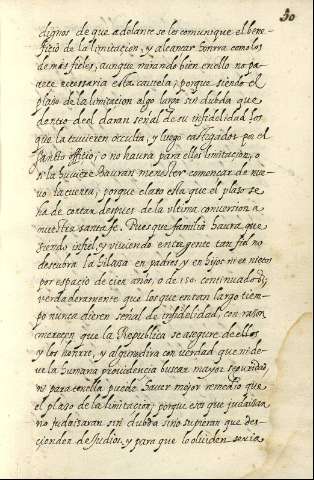 30
dignos de que adelante se les comunique el bene-
ficio de la limitacion, y alcancar honrra como los
demas fieles, aunque mirandobien enello no pa-
rece necessaria esta cautela; porque siendo el
plaso de la limitacion algo largo sin dubda que
dentro del daran señal de su infidelidad los
que la tuvieren occulta, y luego castigados por el
sancto officio; o no haura para ellos limitacion, o
si la huuiere hauran menester comencar de nue
vo la cuenta; porque claro esta que el plaso se
ha de contar despues de la vltima conversion a
nuestra santa fe. Pues que familia haura, que
siendo infiel, y viviendo entre gente tan fiel no
descubra la hilasa en padres, y en hijos ni en nietos
por espacio de cien años, o de 150. continuados;
verdaderamente que los que en tan largo tiem-
po nunca dieren señal de infidelidad, con rason
merecen que la Republica se asegure de ellos
y los honrre, y aun se dira con verdad que ni de-
ve la humana providencia buscar mayor seguridad,
ni para tenella puede haver mejor remedio que
el plaso de la limitacion; porque esos que judaisan
no judaisaran sin dubda sino supieran que des-
cienden de Judios, y para que lo oluiden seria